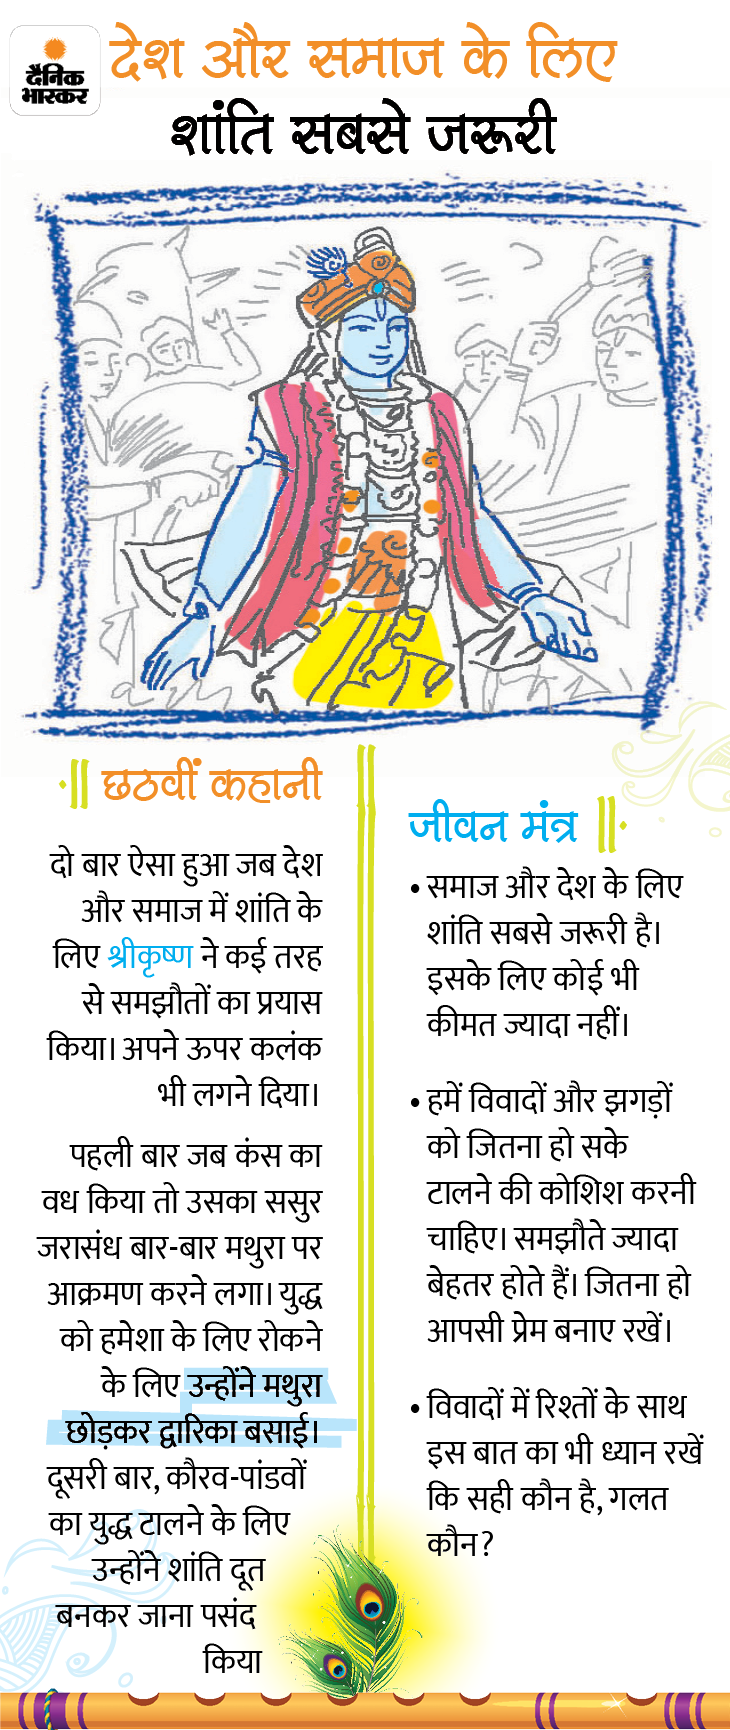 दैनिक
भास्कर
देश और समाज के लिए
शांति सबसे जरूरी
छठवीं कहानी
दो बार ऐसा हुआ जब देश
और समाज में शांति के
लिए श्रीकृष्ण ने कई तरह
से समझौतों का प्रयास
किया। अपने ऊपर कलंक
भी लगने दिया।
पहली बार जब कंस का
वध किया तो उसका ससुर
जरासंध बार-बार मथुरा पर
आक्रमण करने लगा। युद्ध
को हमेशा के लिए रोकने
के लिए उन्होंने मथुरा
छोड़कर द्वारिका बसाई।
दूसरी बार, कौरव-पांडवों
का युद्ध टालने के लिए
उन्होंने शांति दूत
बनकर जाना पसंद
किया
जीवन मंत्र
• समाज और देश के लिए
शांति सबसे जरूरी है।
इसके लिए कोई भी
कीमत ज्यादा नहीं।
• हमें विवादों और झगड़ों
को जितना हो सके
टालने की कोशिश करनी
चाहिए। समझौते ज्यादा
बेहतर होते हैं। जितना हो
आपसी प्रेम बनाए रखें।
• विवादों में रिश्तों के साथ
इस बात का भी ध्यान रखें
कि सही कौन है, गलत
कौन?